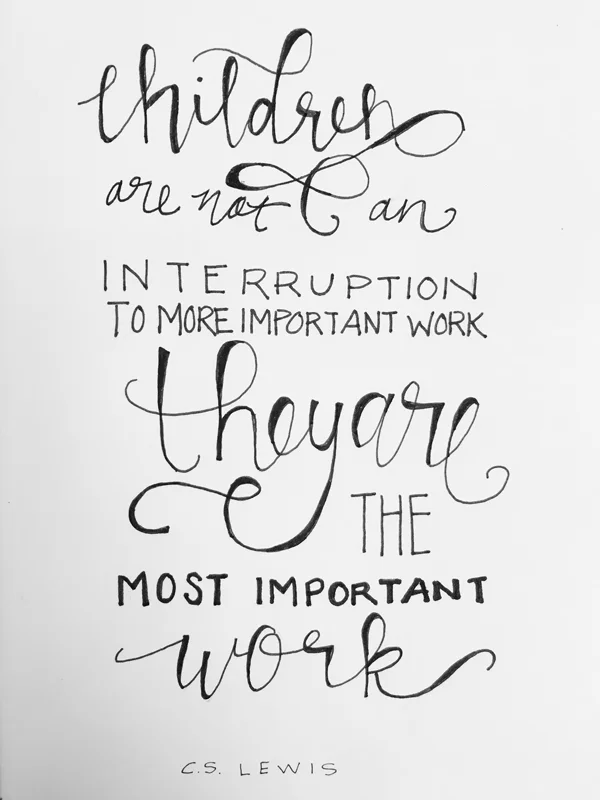 children
are not an
INTERRUPTION
TO MORE IMPORTANT WORK
they are
THE
MOST IMPORTANT
work
C.S. LEWIS